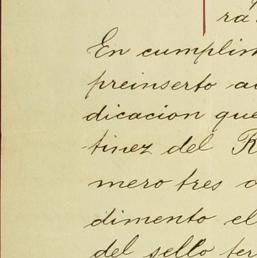 ra
En cumplim
preinserto au
dicacion que
tinez del R
mero tres d
dimento el
del sello ter